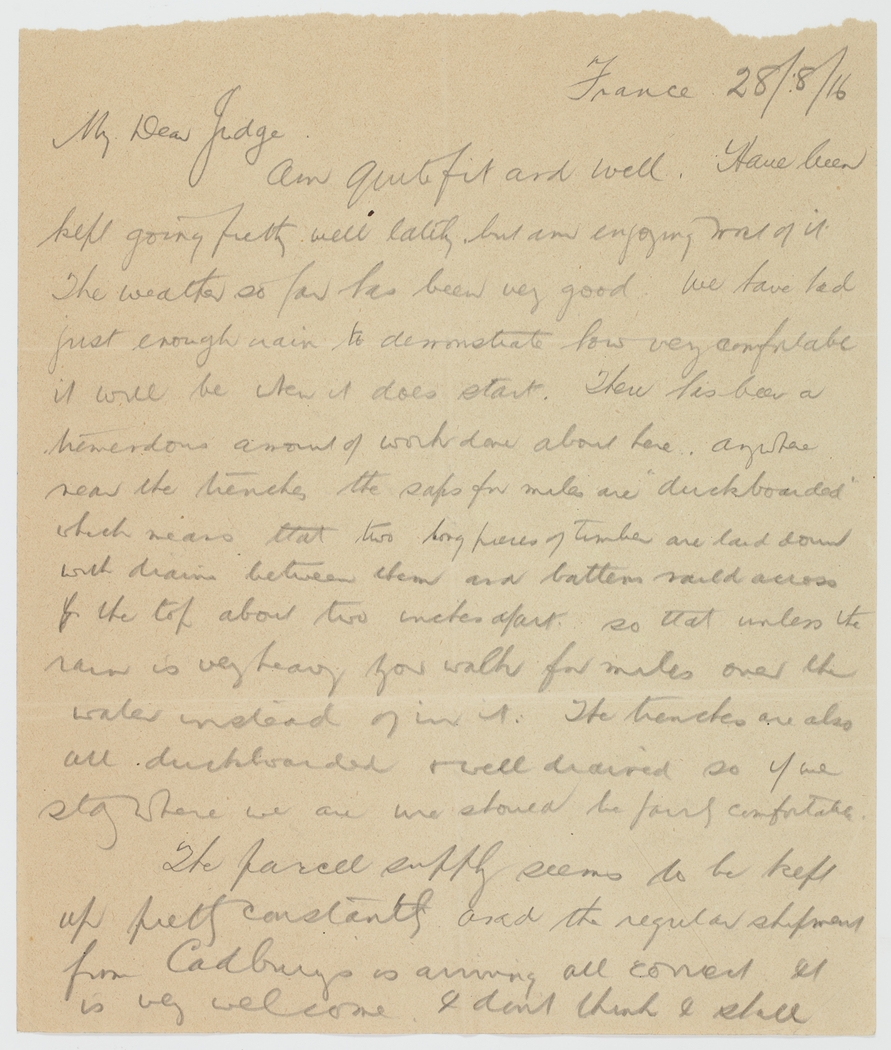 France 28/8/16
My Dear Judge.
Am quite fit and well. Have been
kept going pretty well lately, but am enjoying most of it
The weather so far has been very good. We have had
just enough rain to demonstrate how very comfortable
it will be when it does start. There has been a
tremendous amount of work done about here. anywhere
near the trenches the saps for miles are "duckboarded"
which means that two long pieces of timber are laid down
with drains between them and battens nailed across
the top about two inches apart. so that unless the
rain is very heavy you walk for miles over the
water instead of in it. The trenches are also
all duckboarded & well drained so if we
stay where we are we should be fairly comfortable.
The parcel supply seems to be kept
up pretty constantly and the regular shipment
from Cadburys is arriving all correct. It
is very welcome. I dont think I shall